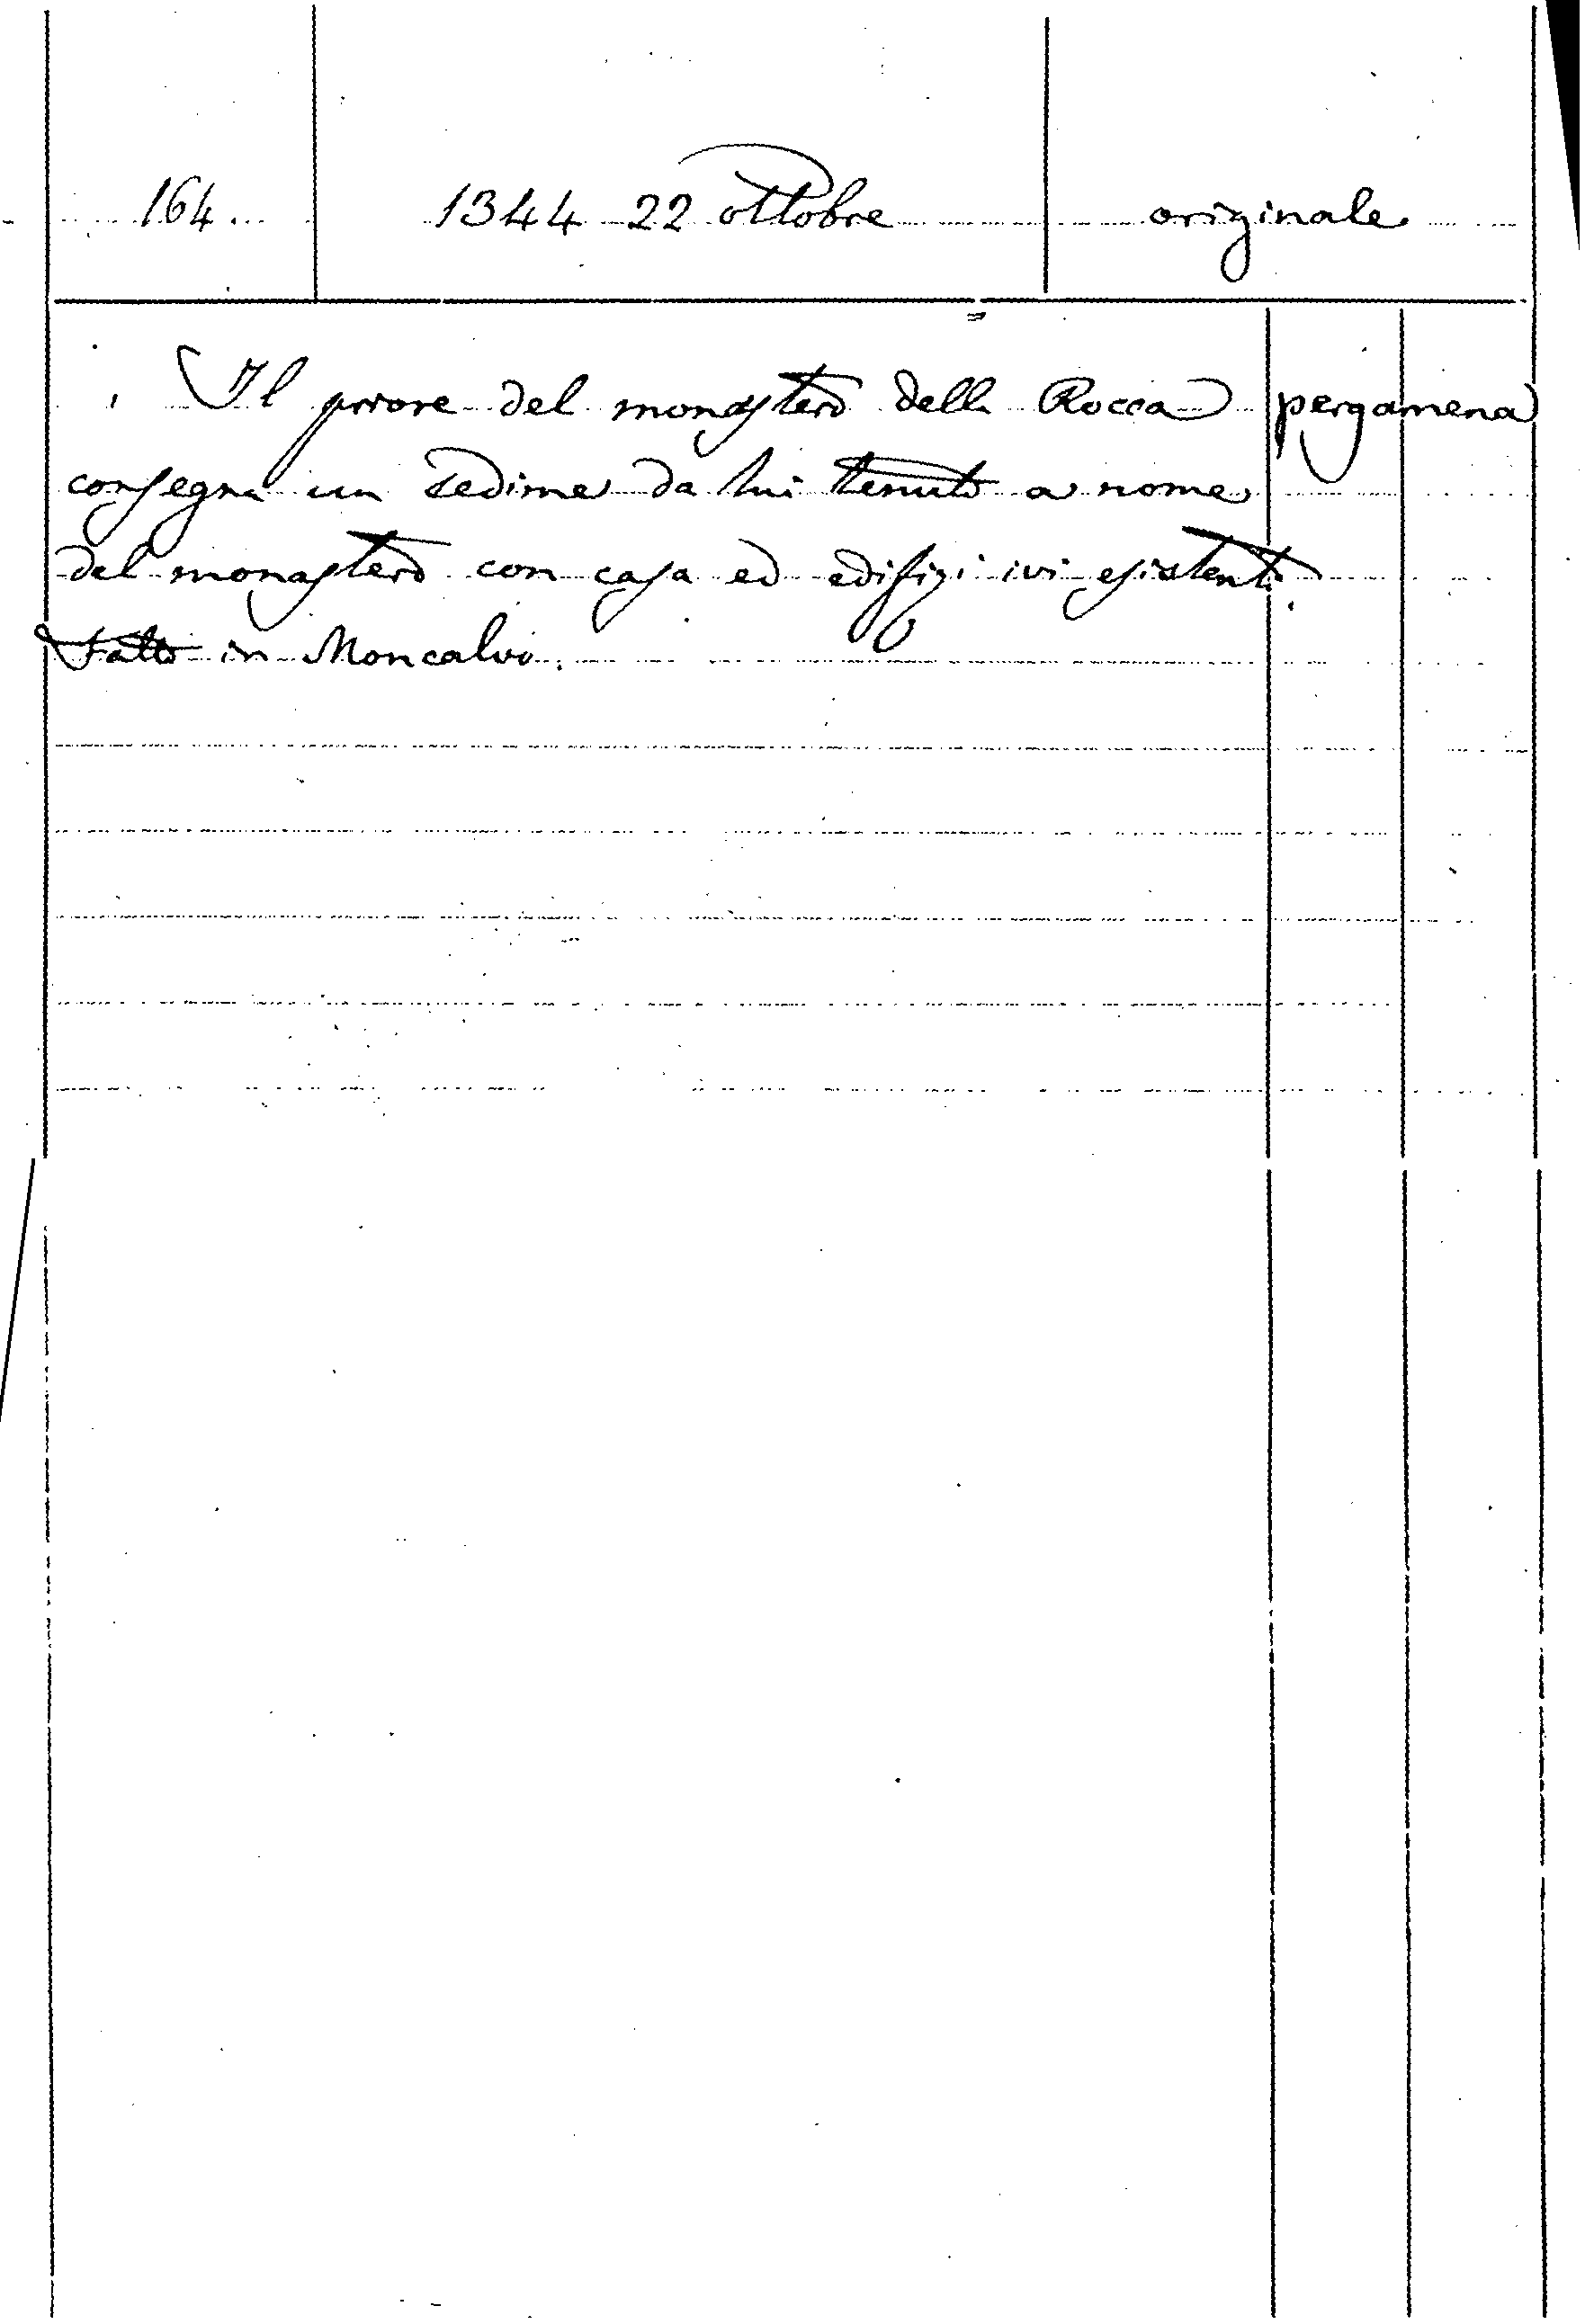 164. 1344 22 ottobre originale
Il priore del monastero della Rocca pergamena
consegna un sedime da lui tenuto a nome
del monastero con casa ed edifizi ivi esistenti.
Fatto in Moncalvo.